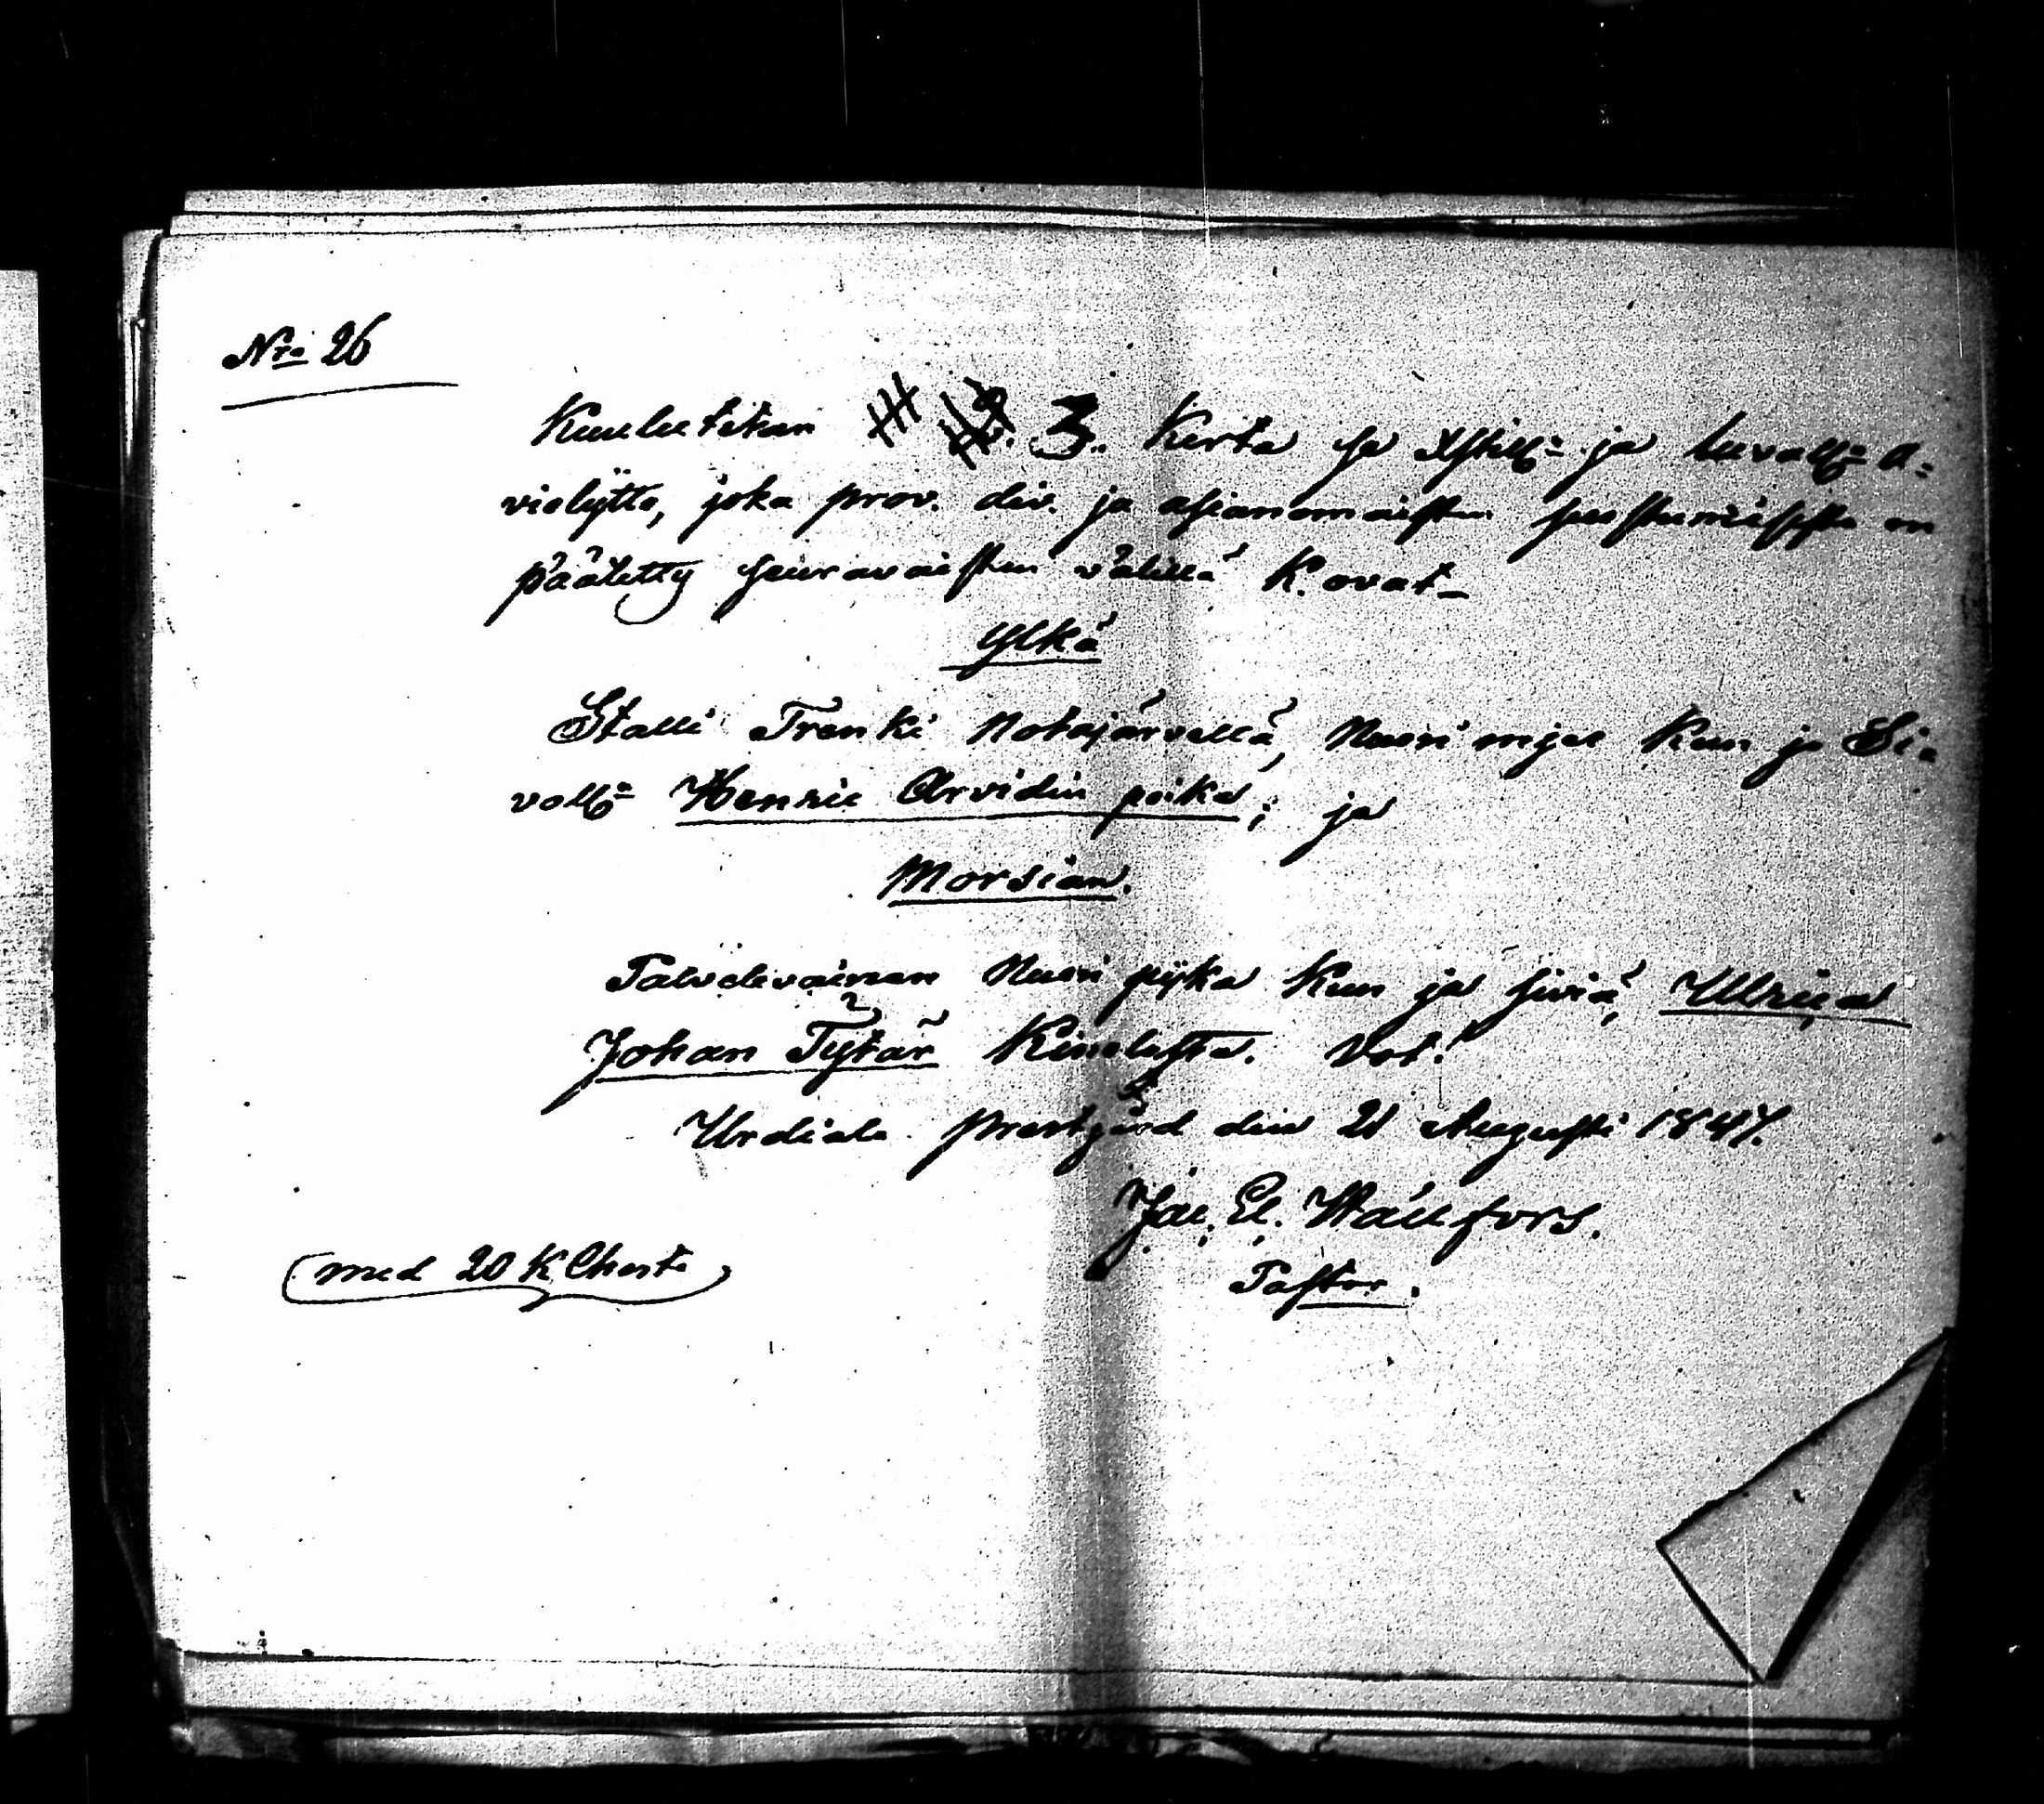 Nro 26
Kuulutetan 3. Kerta se Xstill: ja luvall: A=
violijtto, joka prov. div. ja asianomaisten suostumisesta on
päätetty seuravaisten välillä K. ovat_
Ylkä
Stalli Tränki Notajärvellä, Nuori mjes Kun ja Si=
vollb: Henric Arvidin poika; ja
Morsian.
Palvelevainen Nuori pijka Kun ja siviä, Ulrica
Johan Tÿtär Kinalasta. Vot!
Urdiala prestgård den 21 Augusti 1847.
Jac. El. Wallfors.
Pastor.
(med 20 K Charta)